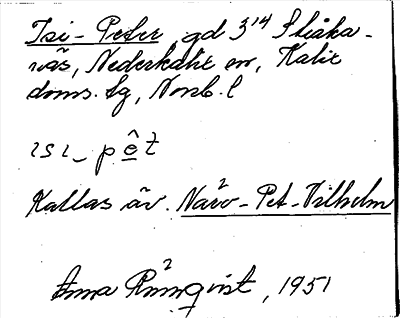 Isi-Peter, gd 3¹⁴ Sliåka-
näs, Nederkalix sn, Kalix
doms. lg, Norrb. l
ısı_pêt
Kallas äv. Narv-Pet-Vilhelm
Anna Rönnqvist, 1951